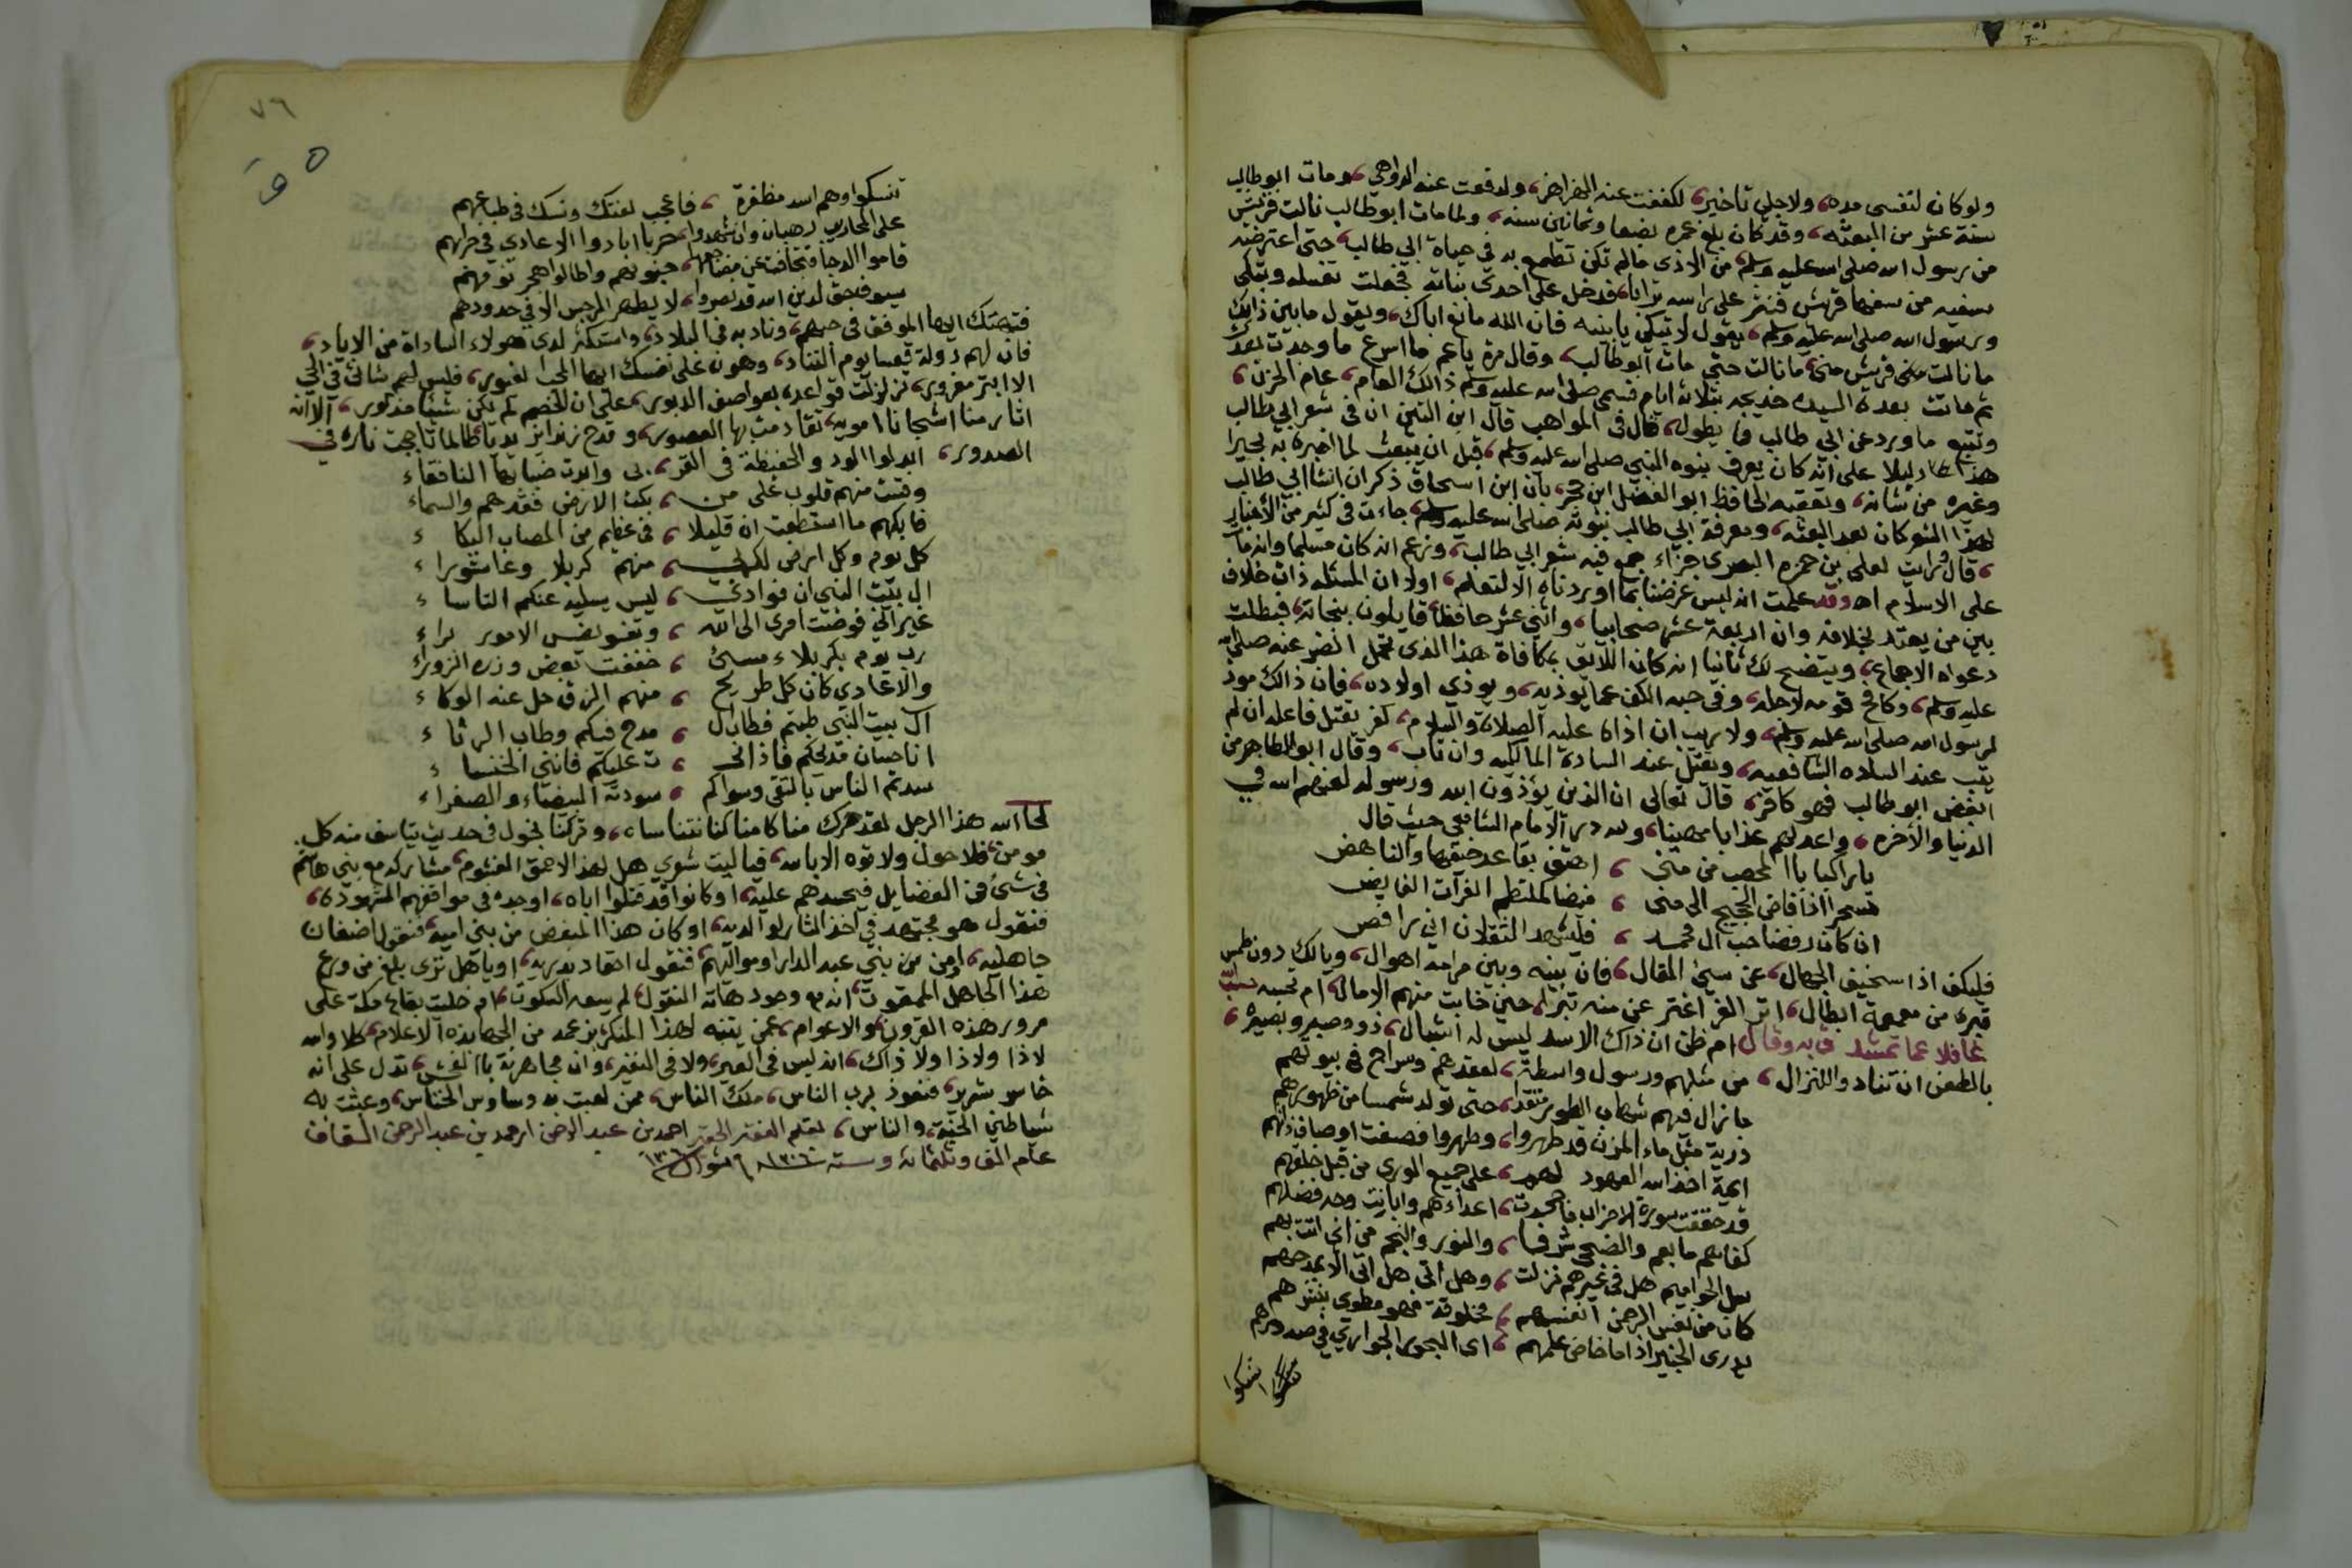 ولو كان لنفسي مده، ولاجلي تاخير، لكففت عنه الهزاهز، ولدفعت عنه الدواهي، ومات ابو طالب
سنة عشر من البعثه، وقد كان بلغ عمره بضعا وثمانين سنه، ولما مات ابو طالب نالت قريش
من رسول الله صلى الله عليه وسلم من الاذى مالم تكن تطمع به في حياة ابي طالب، حتى اعترضه
سفيه من سفها قريش فنثر على راسه ترابا، فدخل على احدى بناته فجعلت تغسله وتبكي
ورسول الله صلى الله عليه وسلم، يقول لا تبكي يا بنيه فان الله مانع اباك، ويقول مابين ذالك
ما نالت مني قريش مني، ما نالت حتى مات ابو طالب، وقال مرة يا عم ما اسرع ما وجدت بعدك
ثم ماتت بعده السيده خديجه بثلاثة ايام فسمى صلى الله عليه وسلم ذالك العام، عام الحزن،
وتتبع ما ورد عن ابي طالب مما يطول، قال في المواهب قال ابن التين ان في شعر ابي طالب
هذا دليلا على انه كان يعرف نبوه النبي صلى الله عليه وسلم، قبل ان يبعث لما اخبره به بحيرا
وغيره من شانه، وتعقبه الحافظ ابو الفضل ابن حجر، بان ابن اسحاق ذكر ان انشا ابي طالب
لهذا الشعر كان بعد البعثه، ومعرفة ابي طالب بنبوته صلى الله عليه وسلم، جاءت في كثير من الاخبار
، قال قرات لعلي بن حمزه البصرى جزاء جمع فيه شعر ابي طالب، وزعم انه كان مسلما وانه مات
على الاسلام اه وقد علمت انه ليس غرضنا بما اوردناه الا لتعلم، اولا ان المسئله ذات خلاف
بين من يعتد بخلافه وان اربعة عشر صحابيا، واثني عشر حافظا، قايلون بنجاته، فبطلت
دعواه الاجماع، ويتضح لك ثانيا انه كان اللايق بمكافاة هذا الذى تحمل الضر عنه صلى الله
عليه وسلم، وكافح قومه لاجله، وفي حبه الكف عما يوذيه، ويوذي اولاده، فان ذالك موذ
لرسول الله صلى الله عليه وسلم، ولا ريب ان اذاه عليه الصلاة والسلام، كفر يقتل فاعله ان لم
يتب عند الساده الشافعيه، ويقتل عند السادة المالكيه وان تاب، وقال ابو الطاهر من
ابغض ابو طالب فهو كافر، قال تعالى ان الذين يؤذون الله ورسوله لعنهم الله في
الدنيا والاخره، واعد لهم عذابا مهينا، ولله در الامام الشافعي حيث قال
يا راكبا بالمحصب من منى ، اهتف بقاعد خيفها والناهض
سحرا اذا فاض الحجيج الى منى ، فيضا كملتطم الفرآت الفايض
ان كان رفضا حب ال محمد ، فليشهد الثقلان اني رافض
فليكف اذا سخيف الجهال، عن سيئ المقال، فان بينه وبين مرامه اهوال، ويا لك دون طمس
قبره من معمعة ابطال، اتر الغر اغتر حين خابت منهم الامال، ام تحسبه
غافلا عما تمشد به وقال ام ظن ان ذاك الاسد ليس له اشبال، ذو وصبر وبصيره،
بالطعن ان تناد والنزال، من مثلهم ورسول واسطة، لعقدهم وسراج في بيوتهم
ما زال فيهم شهاب الطور متقدا، حتى تولد شمسا من ظهورهم
ذرية مثل ماء المزن قد طهروا، وطهروا فصفت اوصاف ذاتهم
ايمة اخذ الله العهود لهم، على جميع الورى من قبل خلقهم
قد حققت سورة الاحزاب ما جحدت، اعداءهم وابانت وجه فضلهم
كفاهم ما بعم والضحى شرفا، والنور والنجم من اتى اتت بهم
سل الحواميم هل في غيرهم نزلت، وهل اتى هل اتى الا بمدحهم
كان من نفس الرحمن انفسهم، مخلوقة فهو مطوي بنشرهم
يدرى الخبير اذا ما خاض علمهم، اى البحور الجواري في صدورهم
تنسكوا
٧٦
تنسكوا وهم اسد مظفرة ، فاعجب لفتك ونسك في طباعهم
على المحاريب رهبان وان شهدوا، حربا ابادوا الاعادي في حرابهم
قاموا الدجا فتجافت عن مضاجعها، جنوبهم واطالوا هجر نومهم
سيوف حق لدين الله قد نصروا، لا يطهر الرجس الا في حدودهم
فتهتك ايها الموفق في حبهم، وناد به في البلاد، واستكثر لدى هولاء الساداة من الاياد،
فان لهم دولة قعسا يوم التناد، وهون على نفسك ايها المحب الغيور، فليس لهم شانئ في الحي
الا ابتر مغرور، تزلزلت قواعده بعواصف الدبور، على ان الخصم لم يكن شيئا مذكور، الا انه
اثار منا اشجانا امويه، تقادمت بها العصور، وقدح زنداين يديا، طالما تاججت ناره في
الصدور، ابدلوا الود والحفيظة في القر، بى وابدت ضبابها النافقاء
وقست منهم قلوب على من ، بكت الارض فقدهم والسماء
فابكهم ما استطعت ان قليلا ، في عظيم من المصاب البكاء
كل يوم وكل ارض لكربي ، منهم كربلا وعاشوراء
ال بيت النبي ان فوادي ، ليس يسليه عنكم التاساء
غير اني فوضت امرى الى الله ، وتفويض الامور براء
رب يوم بكربلاء مسئ ، خففت بعض وزره الزوراء
والاعادي كان كل طريح ، منهم الزق حل عنه الوكاء
ال بيت النبي طبتم فطاب ال ، مدح فيكم وطاب الرثاء
انا حسان مدحكم فاذا نح ، ت عليكم فانني الخنساء
سدتم الناس بالتقى وسواكم ، سودته البيضاء والصفراء
لحا الله هذا الرجل لقد حرك منا كامنا كنا نتناساه، وتركنا نجول في حديث يتاسف منه كل
مومن، فلا حول ولا قوه الا بالله، فيا ليت شعري هل لهذا الاحمق الغشوم، مشاركه مع بني هاشم
في شئ من الفضايل فيحسدهم عليه، او كانوا قد قتلوا اباه، اوجده في مواقفهم المشهوده،
فنقول هو مجتهد في اخذ الثار لوالديه، او كان هذا المبغض من بني اميه، فنقول اضغان
جاهليه، او من بني عبد الدار او مواليهم، فنقول احقاد بدريه، او يا هل ترى بلغ من ورع
هذا الجاهل الممقوت، انه مع وجود هاته النقول، لم يسعه السكوت، ام خلت بقاع مكة على
مرور هذه القرون، والاعوام، عمن يتنبه لهذا المنكر بزعمه من الجهابذه الاعلام، كلا والله
لاذا ولاذا ولا ذاك، انه ليس في العير، ولا في النفير، وان مجاهرته بالفحش، تدل على انه
خاسر شرير، فنعوذ برب الناس، ملك الناس، ممن لعبت به وساوس الخناس، وعبثت به
شياطين الجنة، والناس، بقلم الفقير الحقير احمد بن عبد الرحمن ابن عبد الرحمن السقاف
عام الف وثلثمائه وسته ١٣٠٦ شوال ١٣٠٦